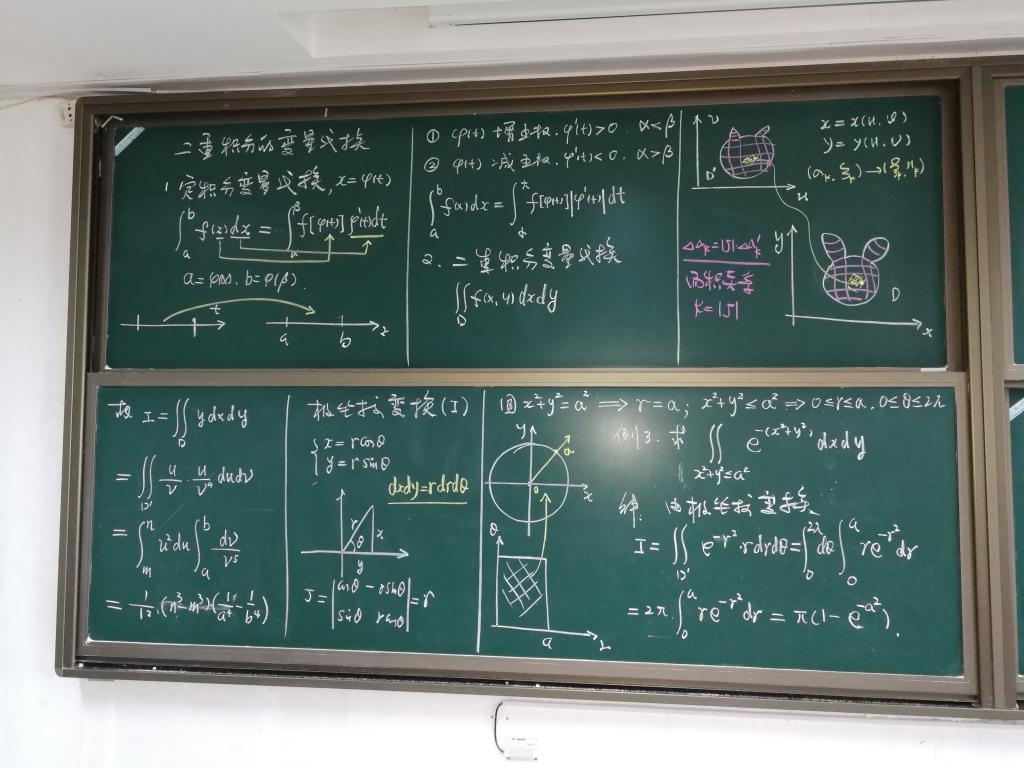 二重积分的变量代换
1. 定积分变量代换, x=φ(t)
∫_a^b f(x)dx = ∫_α^β f[φ(t)]φ'(t)dt
a=φ(α). b=φ(β).
t
a b x
① φ(t) 增函数. φ'(t)>0. α<β
② φ(t) 减函数. φ'(t)<0. α>β
∫_a^b f(x)dx = ∫ f[φ(t)]|φ'(t)|dt
2. 二重积分变量代换
∬_D f(x,y)dxdy
v
D'
u
x=x(u,v)
y=y(u,v)
y
D
x
K=|J|
I=∬_D ydxdy
=∬_D' u/v · u/v⁴ dudv
=∫_m^n u²du ∫_a^b dv/v⁵
=1/12·(n³-m³)(1/a⁴-1/b⁴)
极坐标变换(I)
{x=rcosθ
y=rsinθ
dxdy=rdrdθ
r
θ
x
y
J=|cosθ -rsinθ
sinθ rcosθ|=r
圆x²+y²=a² ⟹ r=a; x²+y²≤a² ⟹ 0≤r≤a, 0≤θ≤2π
y
a
o
x
θ
a
r
例3. 求 ∬_{x²+y²≤a²} e^{-(x²+y²)}dxdy
解: 由极坐标变换
I=∬_D' e^{-r²}·rdrdθ=∫_0^{2π}dθ∫_0^a re^{-r²}dr
=2π∫_0^a re^{-r²}dr=π(1-e^{-a²}).